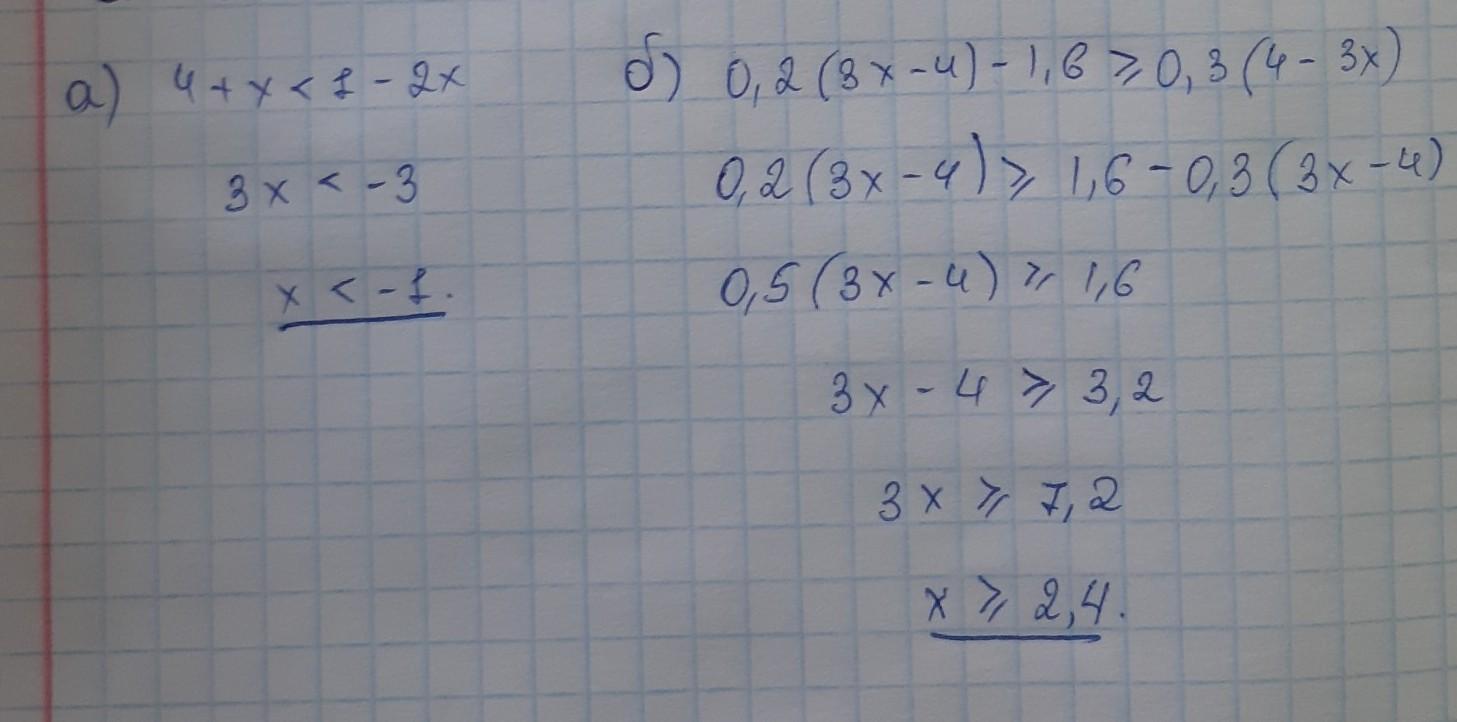 а) 4 + x < 1 - 2x
3x < -3
x < -1.
б) 0,2(3x-4) - 1,6 ⩾ 0,3(4 - 3x)
0,2(3x-4) ⩾ 1,6 - 0,3(3x-4)
0,5(3x-4) ⩾ 1,6
3x - 4 ⩾ 3,2
3x ⩾ 7,2
x ⩾ 2,4.